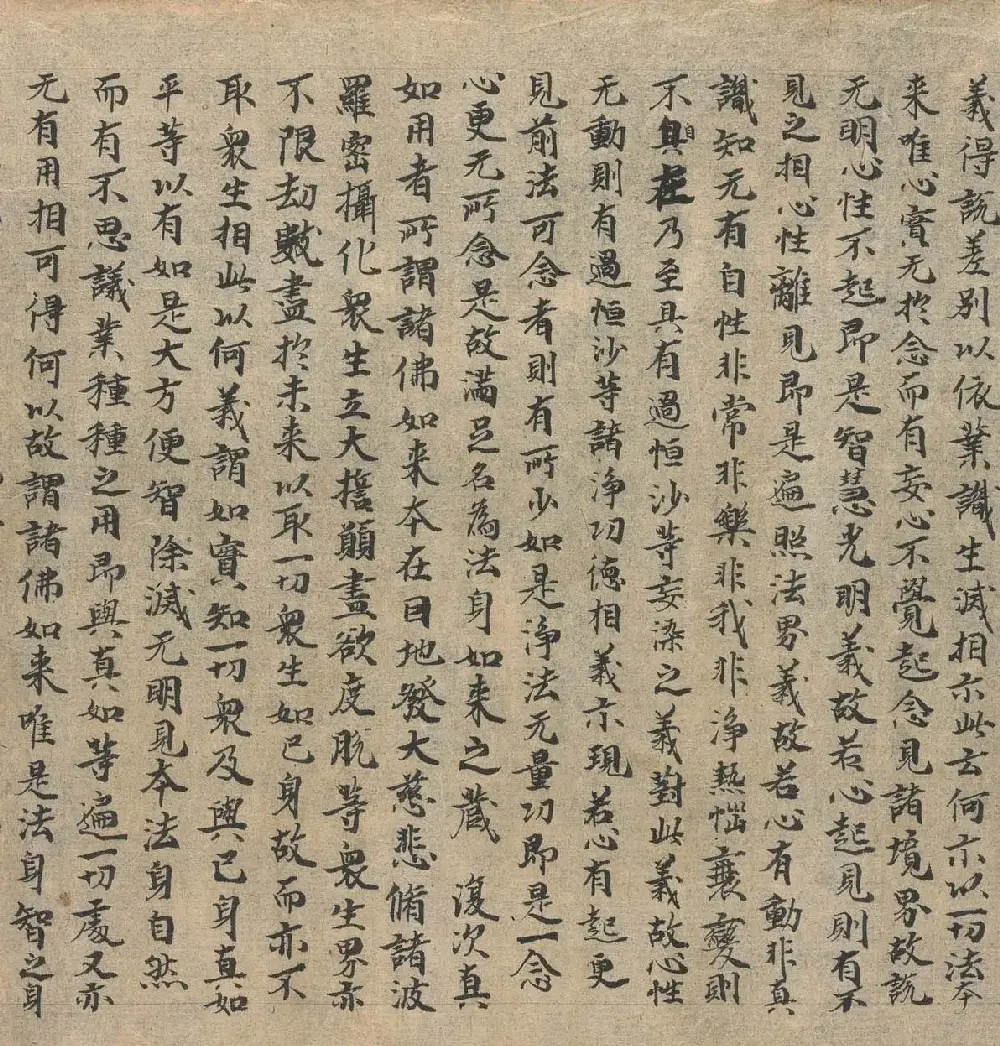 義得說差別以依業識生滅相示此云何示以一切法本
来唯心實无於念而有妄心不覺起念見諸境界故說
无明心性不起即是智慧光明義故若心起見則有不
見之相心性離見即是遍照法界義故若心有動非真
識知无有自性非常非樂非我非淨熱惱衰變則
不自在乃至具有過恒沙等妄染之義對此義故心性
无動則有過恒沙等諸淨功德相義示現若心有起更
見前法可念者則有所少如是淨法无量功即是一念
心更无所念是故滿足名為法身如来之藏　復次真
如用者所謂諸佛如来夲在因地發大慈悲脩諸波
羅密攝化衆生立大擔願盡欲度脫等衆生界亦
不限劫數盡於未来以取一切衆生如己身故而亦不
取衆生相此以何義謂如實知一切衆及與己身真如
平等以有如是大方便智除滅无明見夲法身自然
而有不思議業種種之用即與真如等遍一切處又亦
无有用相可得何以故謂諸佛如来唯是法身智之身